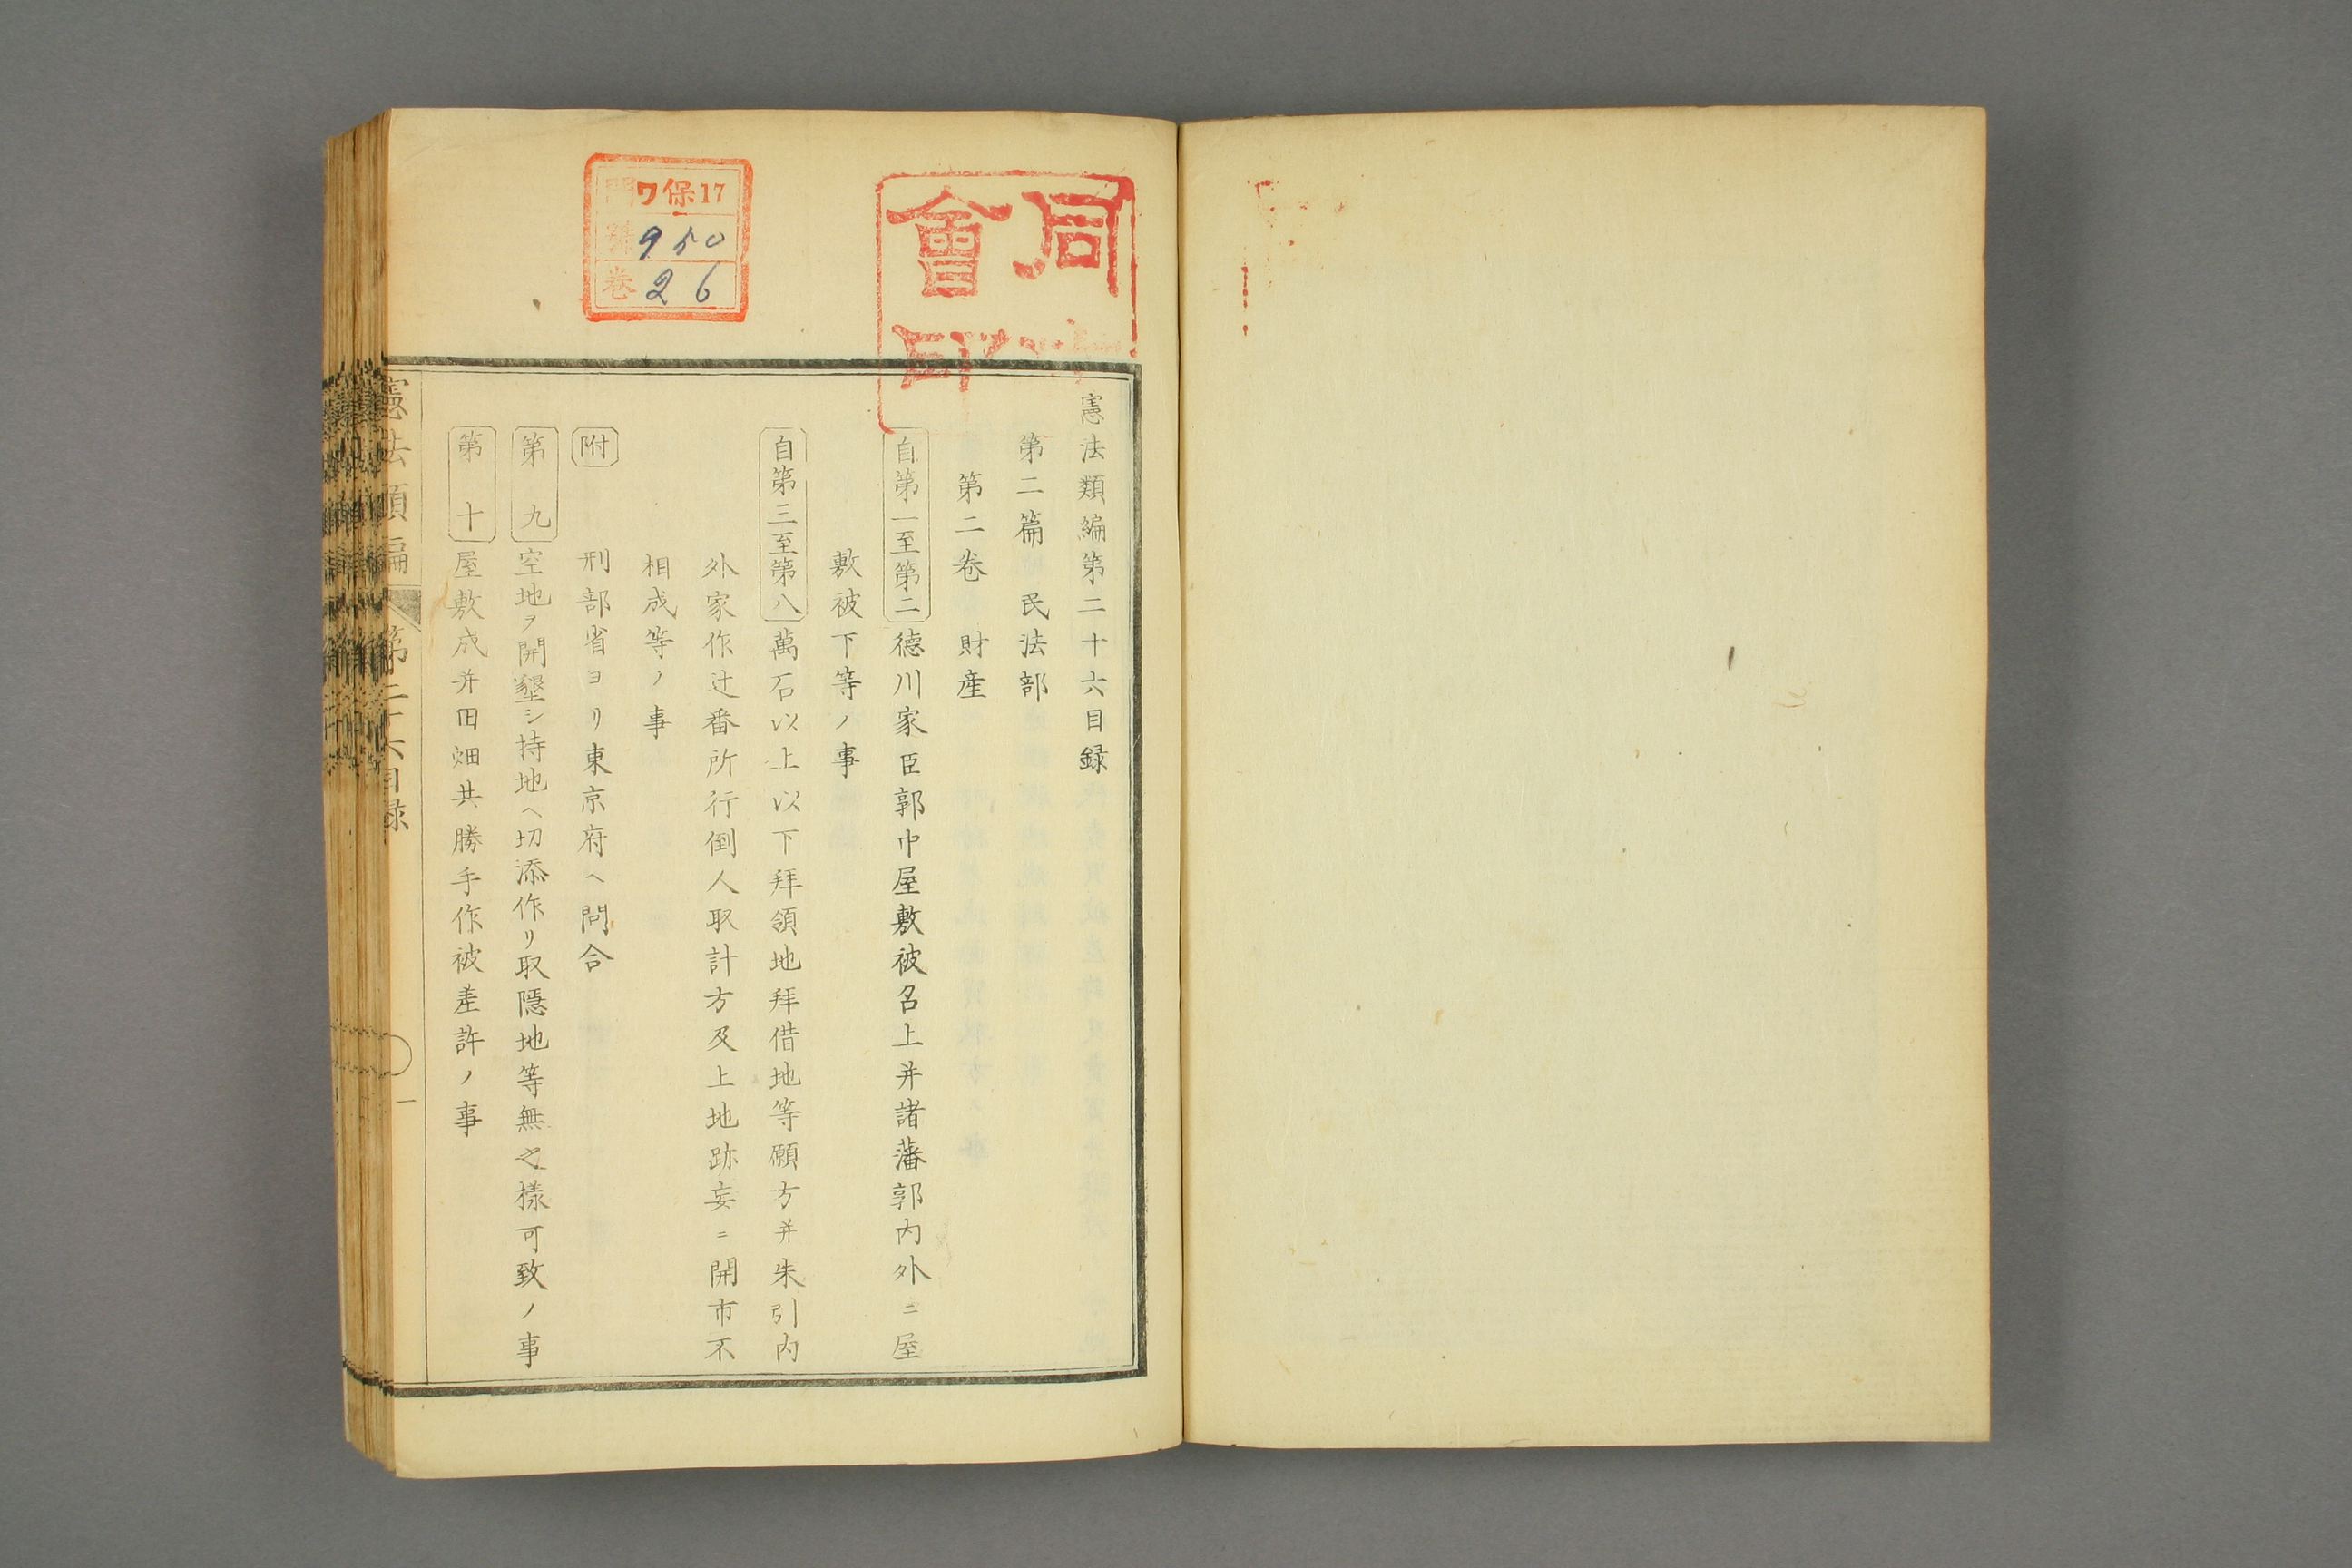 憲法類編第二十六目録
第二篇 民法部
第二巻 財産
自第一至第二 徳川家臣郭中屋敷被召上并諸藩郭内外ニ屋
敷被下等ノ事
自第三至第八 萬石以上以下拜領地拜借地等願方并朱引内
外家作辻番所行倒人取計方及上地跡妄ニ開市不
相成等ノ事
附 刑部省ヨリ東京府ヘ問合
第九 空地ヲ開墾シ持地ヘ切添作リ取隱地等無之樣可致ノ事
第十 屋敷成并田畑共勝手作被差許ノ事
憲法類編 第二十六目録 一
門 ワ保17
號 950
巻 26
同
會印